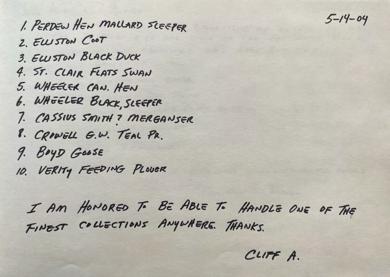 5-14-04
1. PERDEW HEN MALLARD SLEEPER
2. ELLISTON COOT
3. ELLISTON BLACK DUCK
4. ST. CLAIR FLATS SWAN
5. WHEELER CAN. HEN
6. WHEELER BLACK, SLEEPER
7. CASSIUS SMITH? MERGANSER
8. CROWELL G.W. TEAL PR.
9. BOYD GOOSE
10. VERITY FEEDING PLOVER
I AM HONORED TO BE ABLE TO HANDLE ONE OF THE
FINEST COLLECTIONS ANYWHERE. THANKS.
CLIFF A.